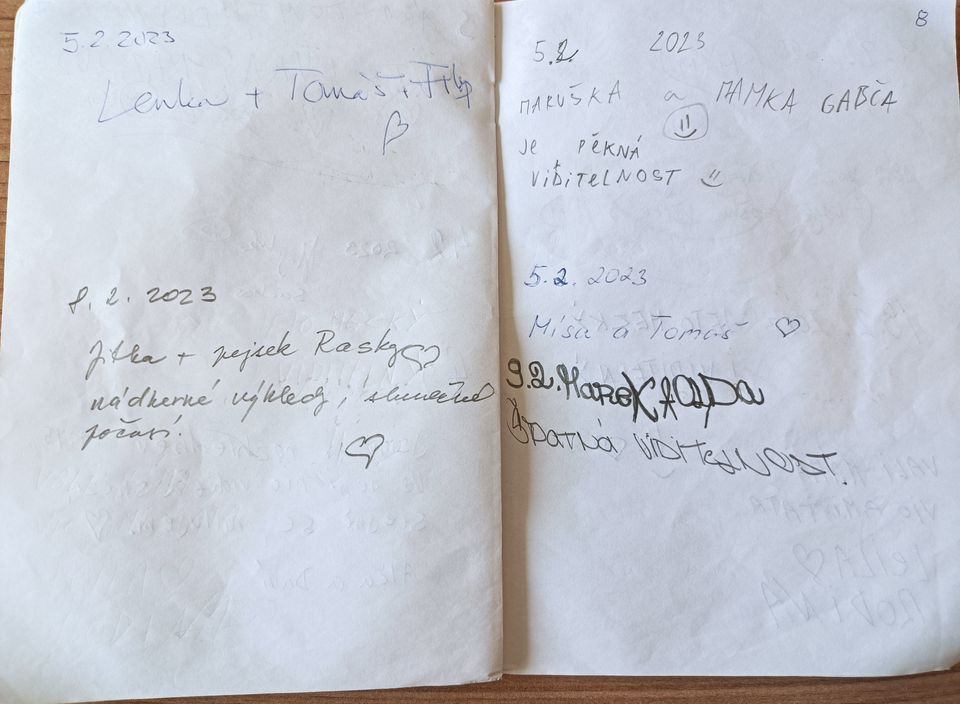 5.2.2023
Lenka + Tomáš + Filip
8. 2. 2023
Jitka + pejsek Rasky
nádherné výhledy i slunečné
počasí.
8
5.2 2023
MARUŠKA a MAMKA GABČA
JE PĚKNÁ
VIDITELNOST
5.2. 2023
Míša a Tomáš
9.2. Marek
ŠPATNÁ VIDITELNOST.